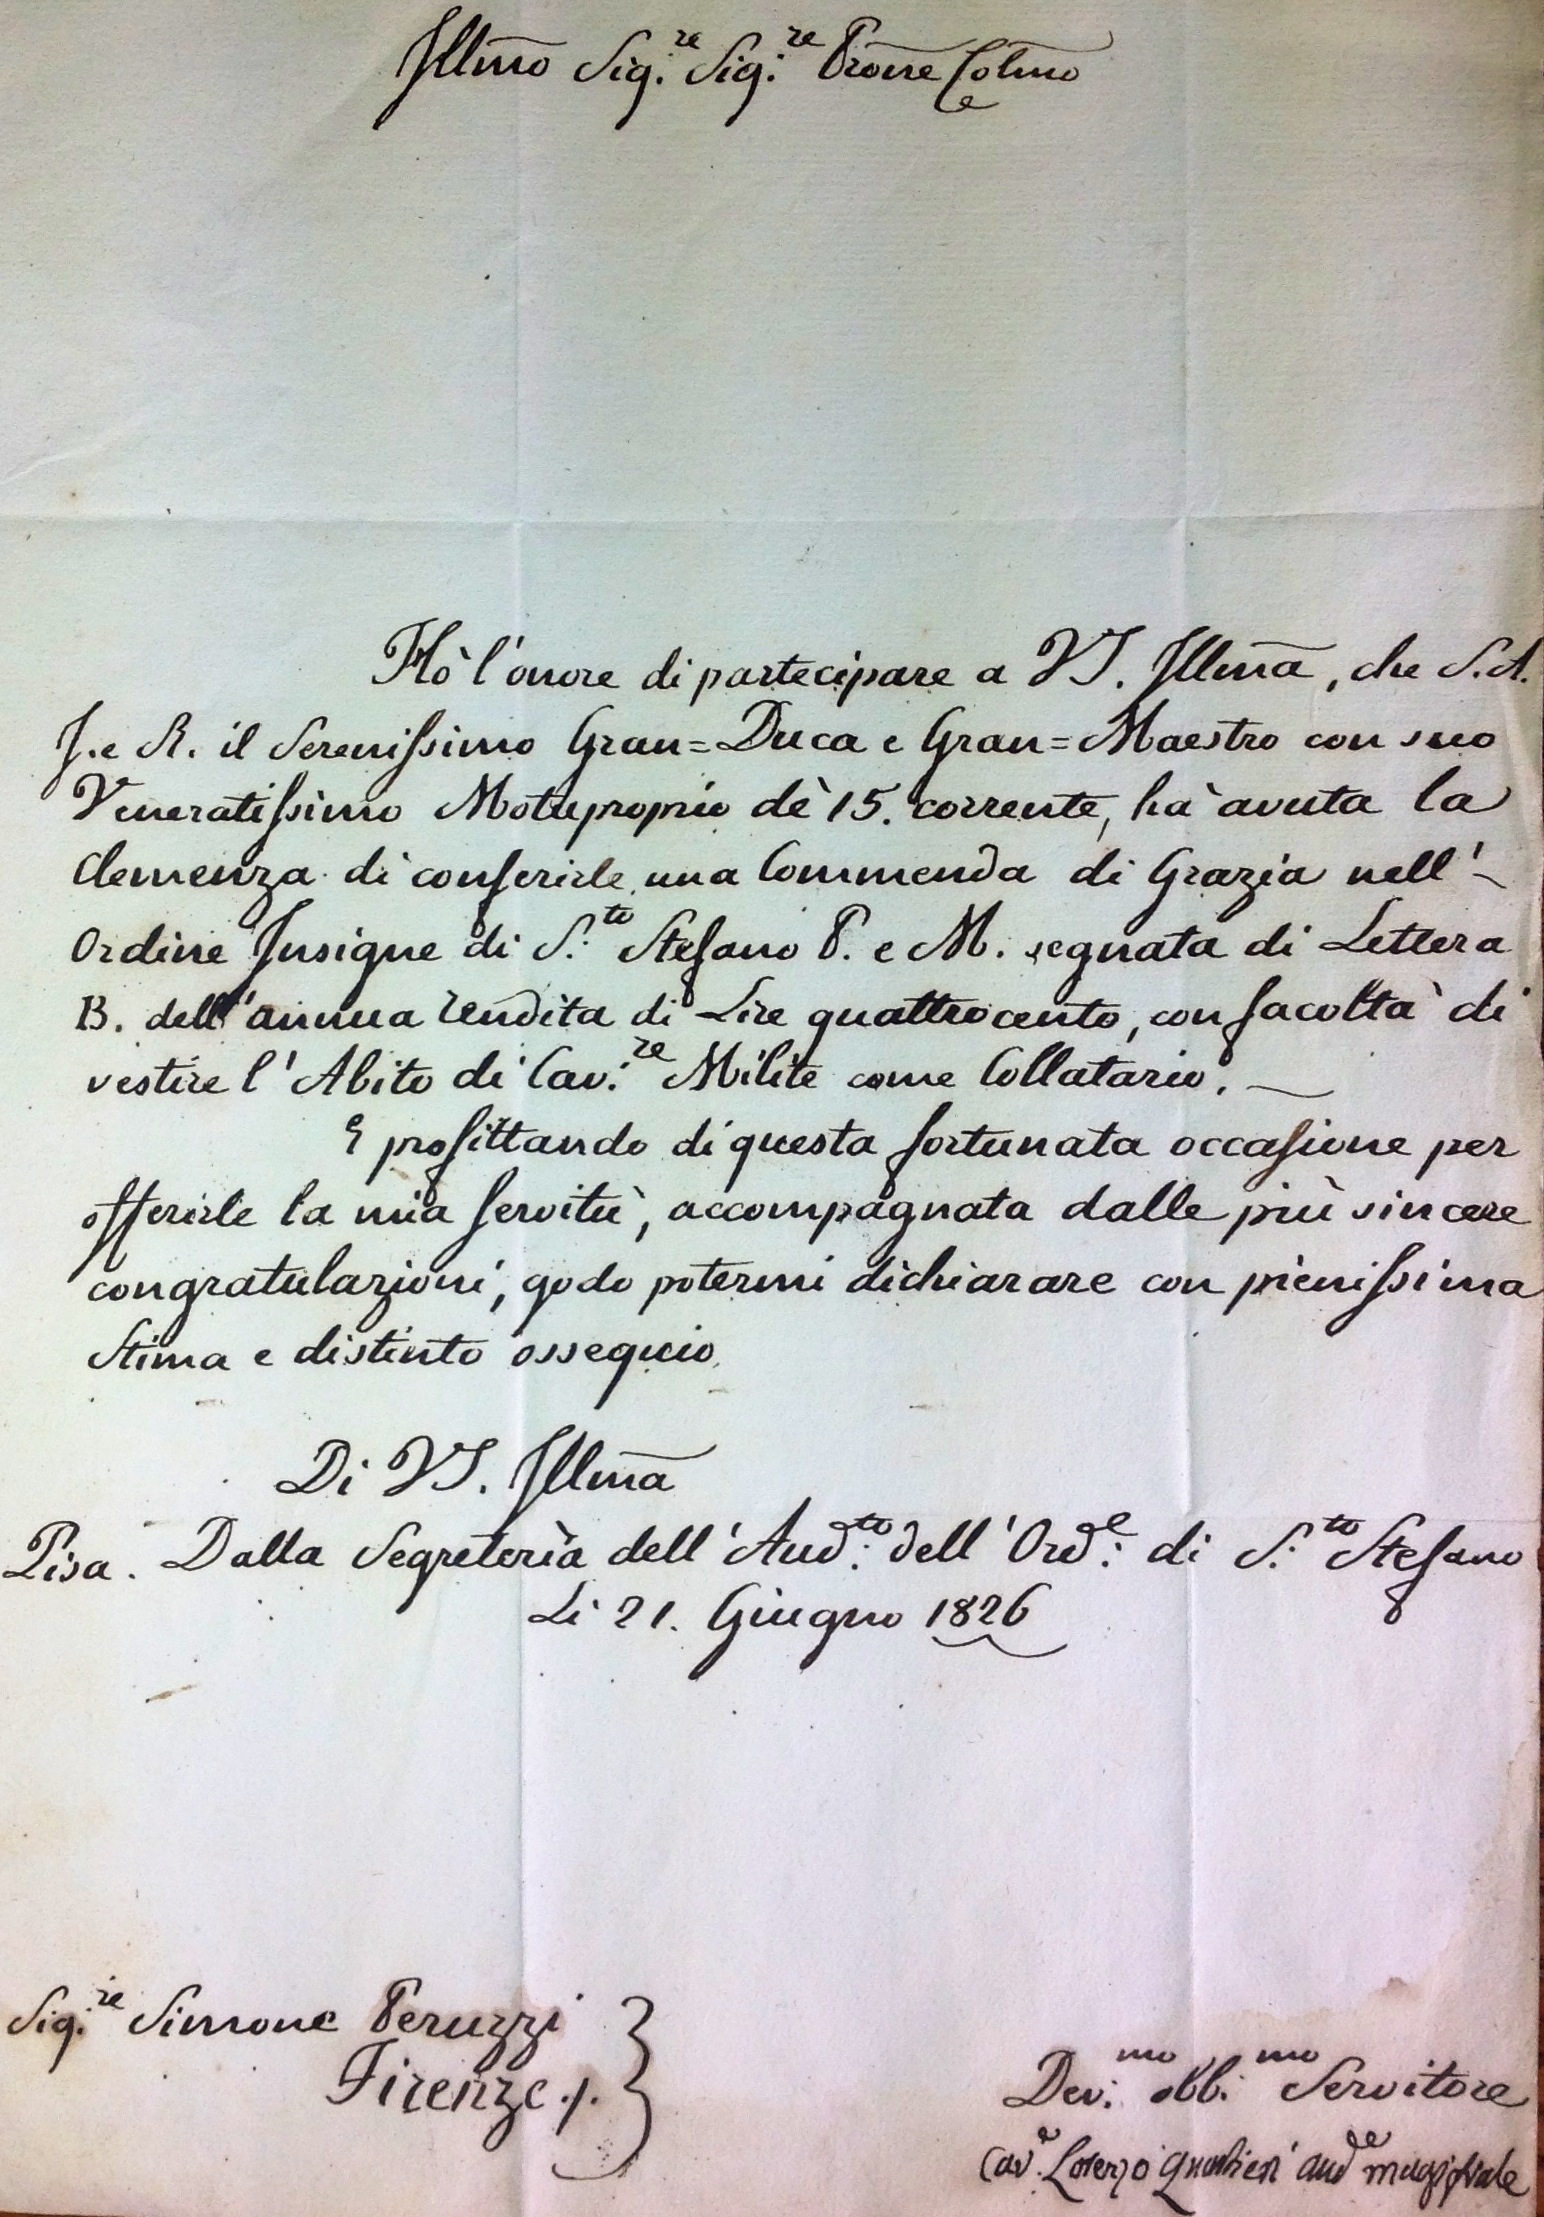 Illmo Sig.re Sig.re Prone Colmo
Hò l'onore di partecipare a VS. Illma, che S.A.
I. e R. il Serenissimo Gran=Duca e Gran=Maestro con suo
Veneratissimo Motuproprio dè 15. corrente, hà avuta la
Clemenza di conferirle una Commenda di Grazia nell'
Ordine Insigne di S.to Stefano P. e M. segnata di Lettera
B. dell'annua rendita di Lire quattrocento, con facoltà di
vestire l'Abito di Cav.re Milite come Collatario.
E profittando di questa fortunata occasione per
offerirle la mia servitù, accompagnata dalle più sincere
congratulazioni, godo potermi dichiarare con pienissima
Stima e distinto ossequio
Di VS. Illma
Pisa. Dalla Segreterìa dell'Aud.to dell'Ord.e di S.to Stefano
Li 21. Giugno 1826
Sig.re Simone Peruzzi
Firenze
Dev.mo obb.mo Servitore
Cav.e Lorenzo aud.re magistrale